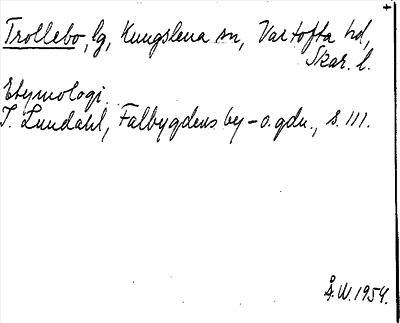 Trollebo, lg, Kungslena sn, Vartofta hd,
Skar. l.
Etymologi.
I. Lundahl, Falbygdens by- o. gdn., s. 111.
Å.W. 1954.